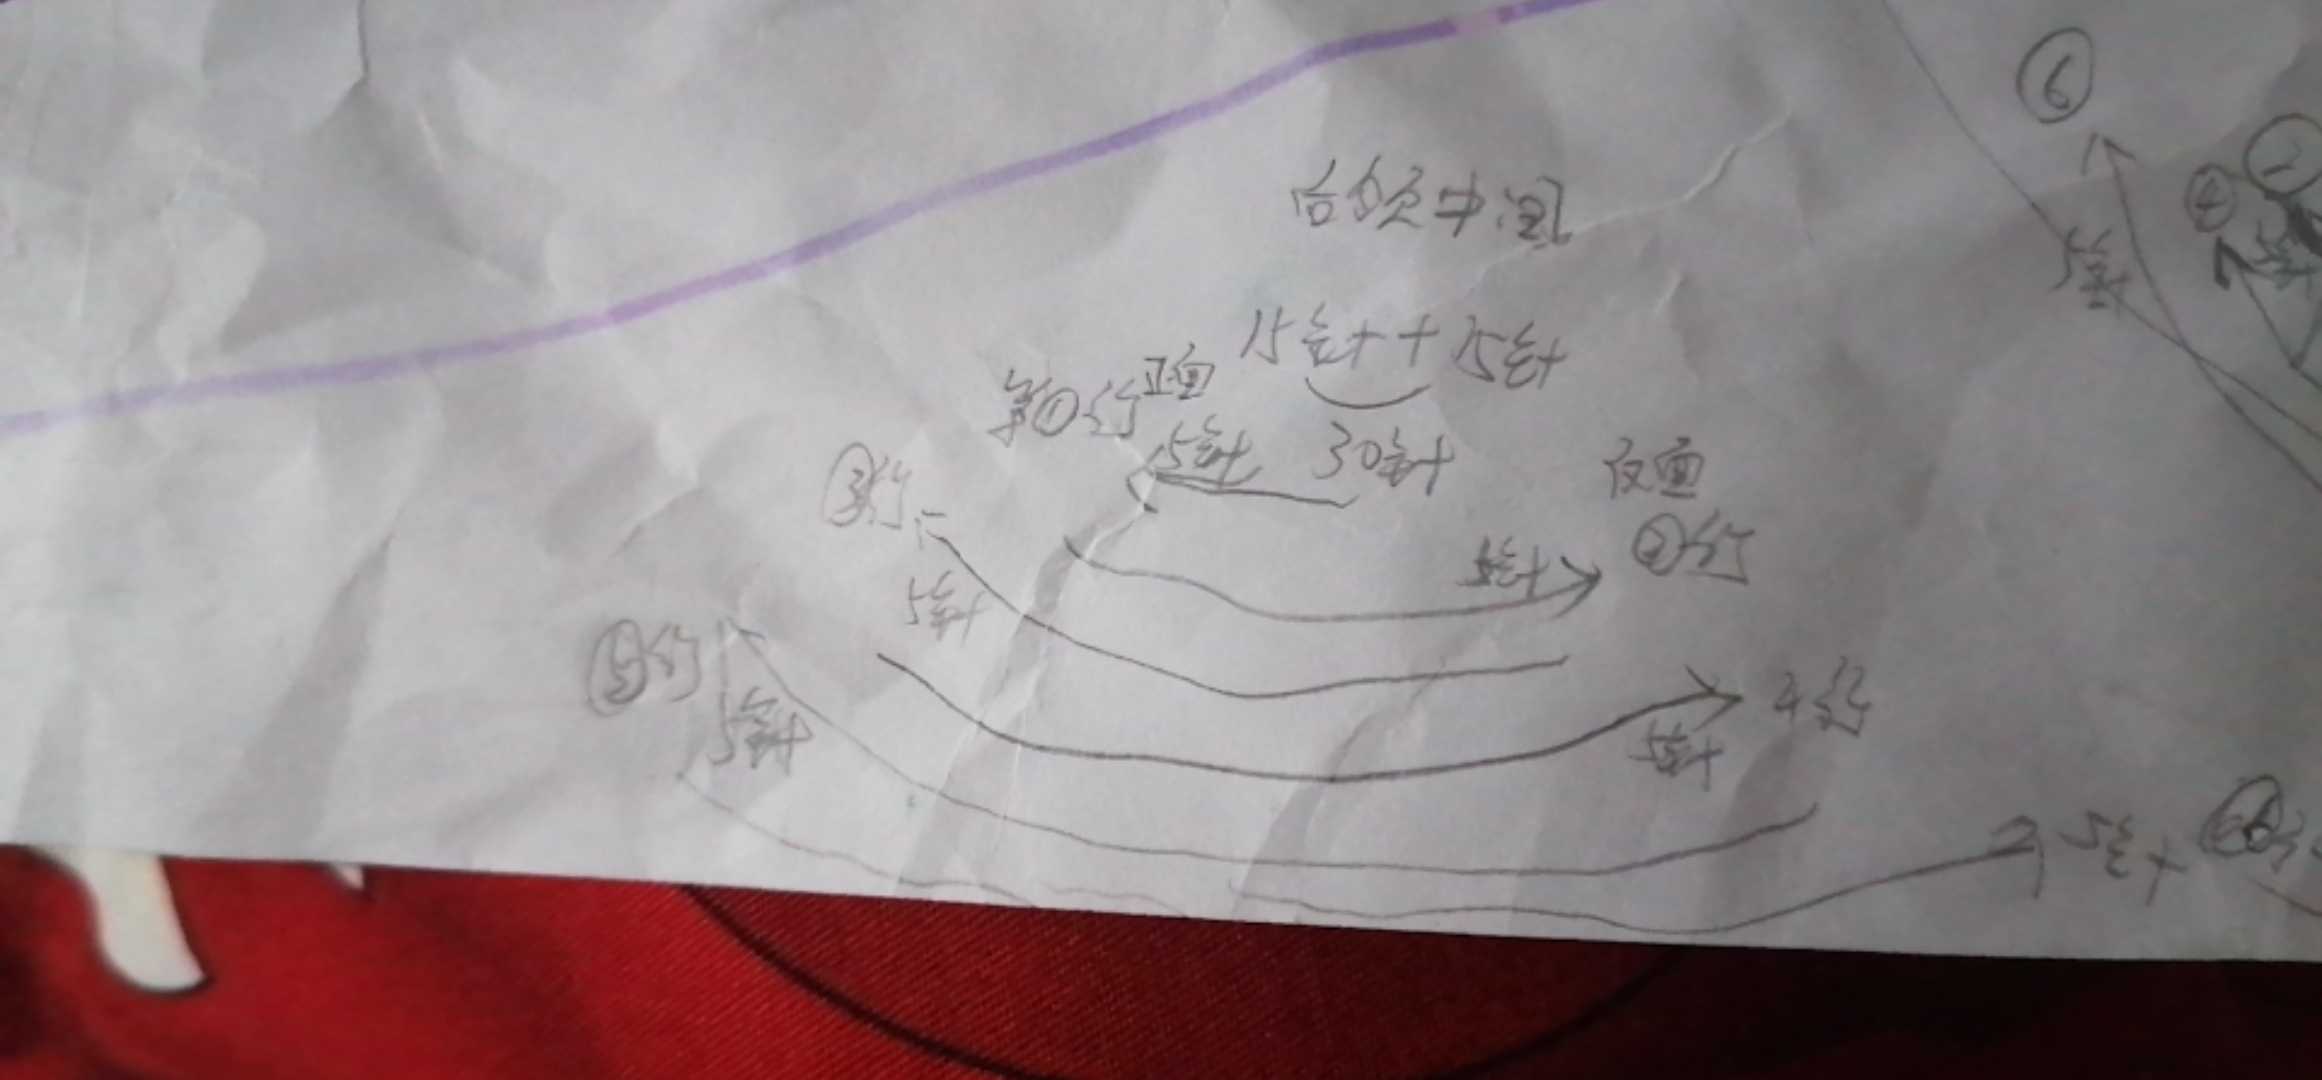 后领中间
15针+15针
第①行 正面
15针 30针
反面
③行
②行
5针
5针
⑤行
4行
5针
5针
5针
⑥
5针
④
5针